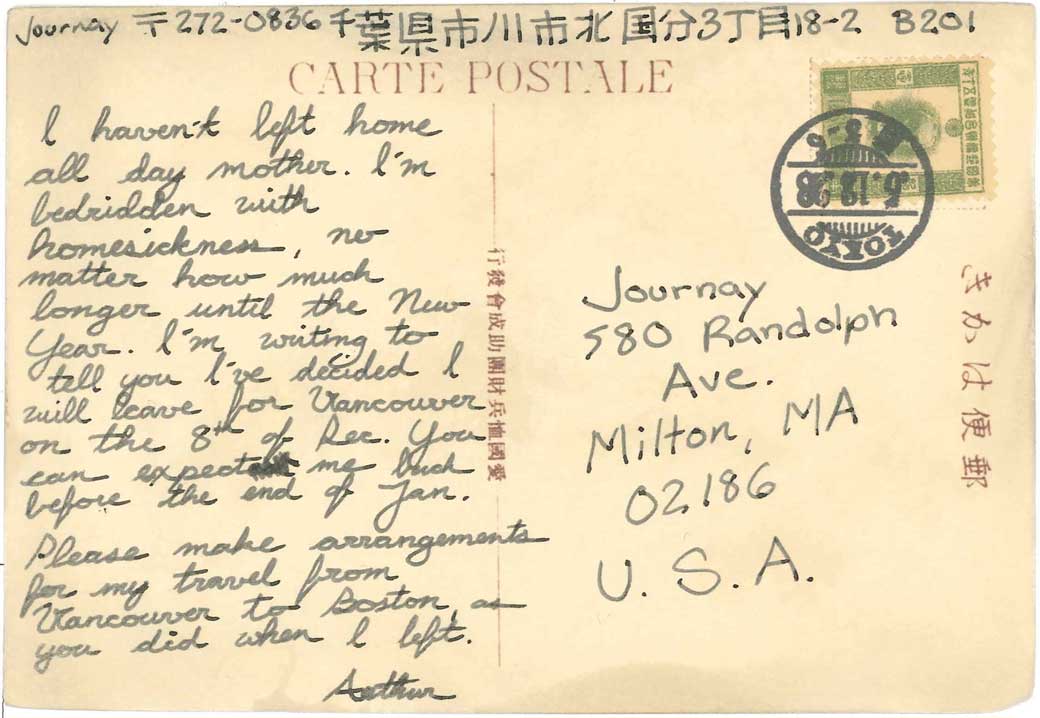 Journay 〒272-0836 千葉県市川市北国分3丁目18-2 B201
CARTE POSTALE
I haven't left home
all day mother. I'm
bedridden with
homesickness, no
matter how much
longer until the New
Year. I'm writing to
tell you I've decided I
will leave for Vancouver
on the 8th of Dec. You
can expect me back
before the end of Jan.
Please make arrangements
for my travel from
Vancouver to Boston, as
you did when I left.
Arthur
行發會成助團財兵恤國愛
TOKYO
Journay
580 Randolph
Ave.
Milton, MA
02186
U.S.A.
きかは便郵